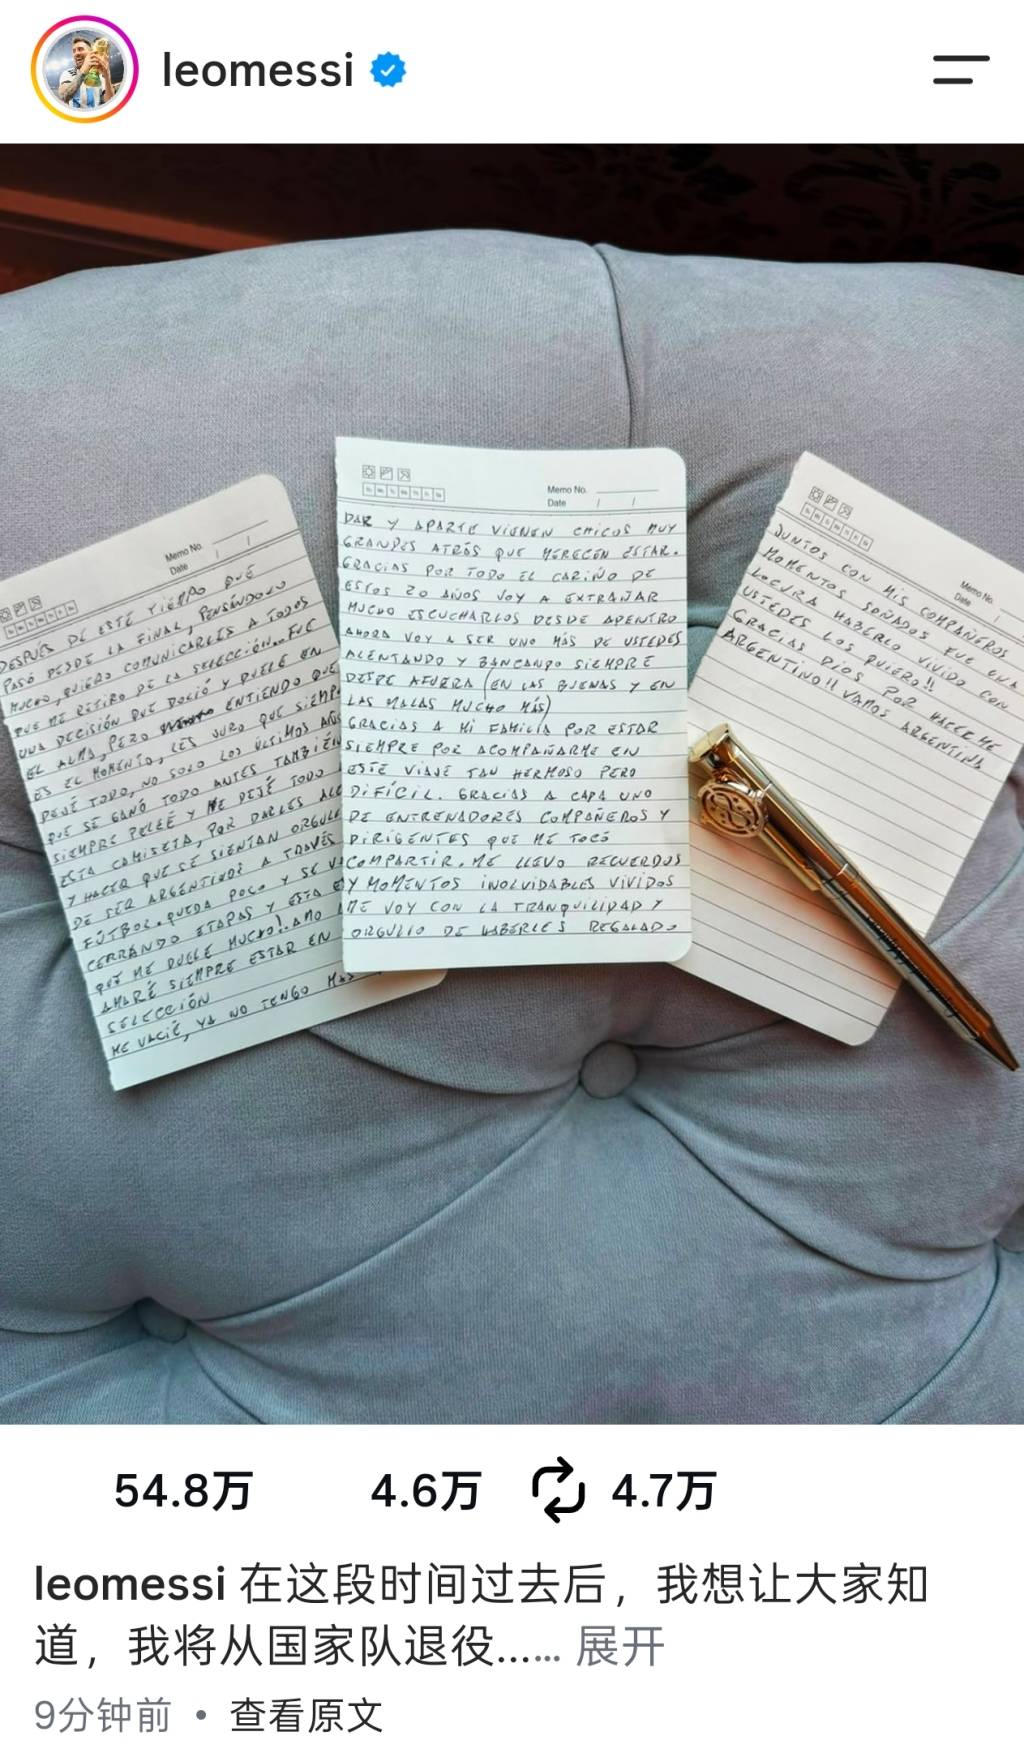 leomessi
Memo No.
Date / /
DESPUÉS DE ESTE TIEMPO QUE
PASÓ DESDE LA FINAL, PENSÁNDOLO
MUCHO, QUIERO COMUNICARLES A TODOS
QUE ME RETIRO DE LA SELECCIÓN... FUE
UNA DECISIÓN QUE DOLIÓ Y DUELE EN
EL ALMA, PERO ENTIENDO QUE
ES EL MOMENTO, LES JURO QUE SIEMP
DEJÉ TODO, NO SOLO LOS ÚLTIMOS AÑOS
QUE SE GANÓ TODO ANTES TAMBIÉN
SIEMPRE PELEÉ Y ME DEJÉ TODO
ESTA CAMISETA, POR DARLES ALE
Y HACER QUE SE SIENTAN ORGULL
DE SER ARGENTINOS A TRAVÉS
FÚTBOL. QUEDA POCO Y SE V
CERRANDO ETAPAS Y ESTA E
QUE ME DUELE MUCHO! AMO
AMARÉ SIEMPRE ESTAR EN
SELECCIÓN
ME VACIÉ, YA NO TENGO MÁS
Memo No.
Date / /
DAR Y APARTE VIENEN CHICOS MUY
GRANDES ATRÁS QUE MERECEN ESTAR.
GRACIAS POR TODO EL CARIÑO DE
ESTOS 20 AÑOS VOY A EXTRAÑAR
MUCHO ESCUCHARLOS DESDE ADENTRO
AHORA VOY A SER UNO MÁS DE USTEDES
ALENTANDO Y BANCANDO SIEMPRE
DESDE AFUERA (EN LAS BUENAS Y EN
LAS MALAS MUCHO MÁS)
GRACIAS A MI FAMILIA POR ESTAR
SIEMPRE POR ACOMPAÑARME EN
ESTE VIAJE TAN HERMOSO PERO
DIFÍCIL. GRACIAS A CADA UNO
DE ENTRENADORES COMPAÑEROS Y
DIRIGENTES QUE ME TOCÓ
COMPARTIR. ME LLEVO RECUERDOS
Y MOMENTOS INOLVIDABLES VIVIDOS
ME VOY CON LA TRANQUILIDAD Y
ORGULLO DE HABERLES REGALADO
Memo No.
Date / /
JUNTOS CON MIS COMPAÑEROS
MOMENTOS SOÑADOS FUE UNA
LOCURA HABERLO VIVIDO CON
USTEDES LOS QUIERO!!
GRACIAS DIOS POR HACERME
ARGENTINO!! VAMOS ARGENTINA
54.8万 4.6万 4.7万
leomessi 在这段时间过去后，我想让大家知
道，我将从国家队退役...... 展开
9分钟前 • 查看原文